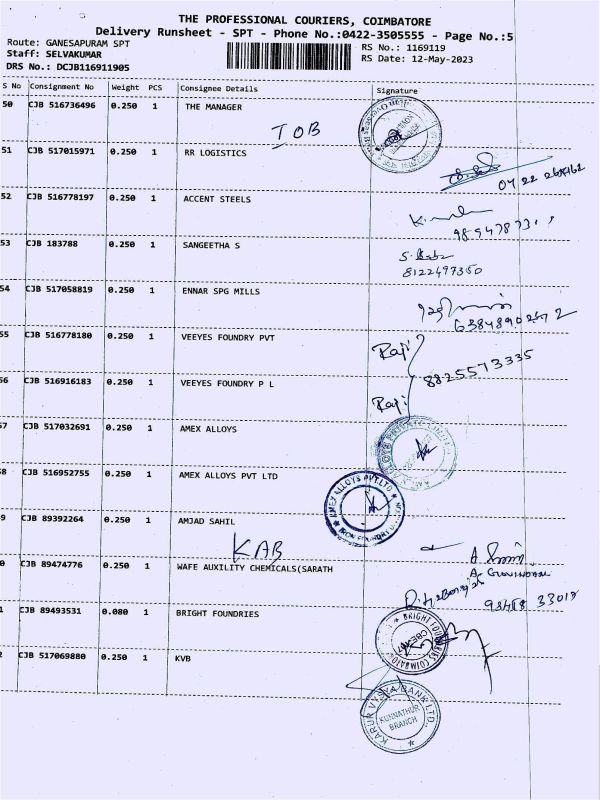 THE PROFESSIONAL COURIERS, COIMBATORE
Delivery Runsheet - SPT - Phone No.:0422-3505555 - Page No.:5
Route: GANESAPURAM SPT
Staff: SELVAKUMAR
DRS No.: DCJB116911905
RS No.: 1169119
RS Date: 12-May-2023
S No Consignment No Weight PCS Consignee Details Signature
50 CJB 516736496 0.250 1 THE MANAGER
IOB
51 CJB 517015971 0.250 1 RR LOGISTICS
52 CJB 516778197 0.250 1 ACCENT STEELS
53 CJB 183788 0.250 1 SANGEETHA S
8122497350
54 CJB 517058819 0.250 1 ENNAR SPG MILLS
55 CJB 516778180 0.250 1 VEEYES FOUNDRY PVT
Raji
8825573335
56 CJB 516916183 0.250 1 VEEYES FOUNDRY P L
Raji
57 CJB 517032691 0.250 1 AMEX ALLOYS
58 CJB 516952755 0.250 1 AMEX ALLOYS PVT LTD
AMEX ALLOYS PVT LTD
9 CJB 89392264 0.250 1 AMJAD SAHIL
KAB
0 CJB 89474776 0.250 1 WAFE AUXILITY CHEMICALS(SARATH
1 CJB 89493531 0.080 1 BRIGHT FOUNDRIES
BRIGHT
COIMBATORE
2 CJB 517069880 0.250 1 KVB
KARUR VYSYA BANK LTD.,
KUNNATHUR
BRANCH